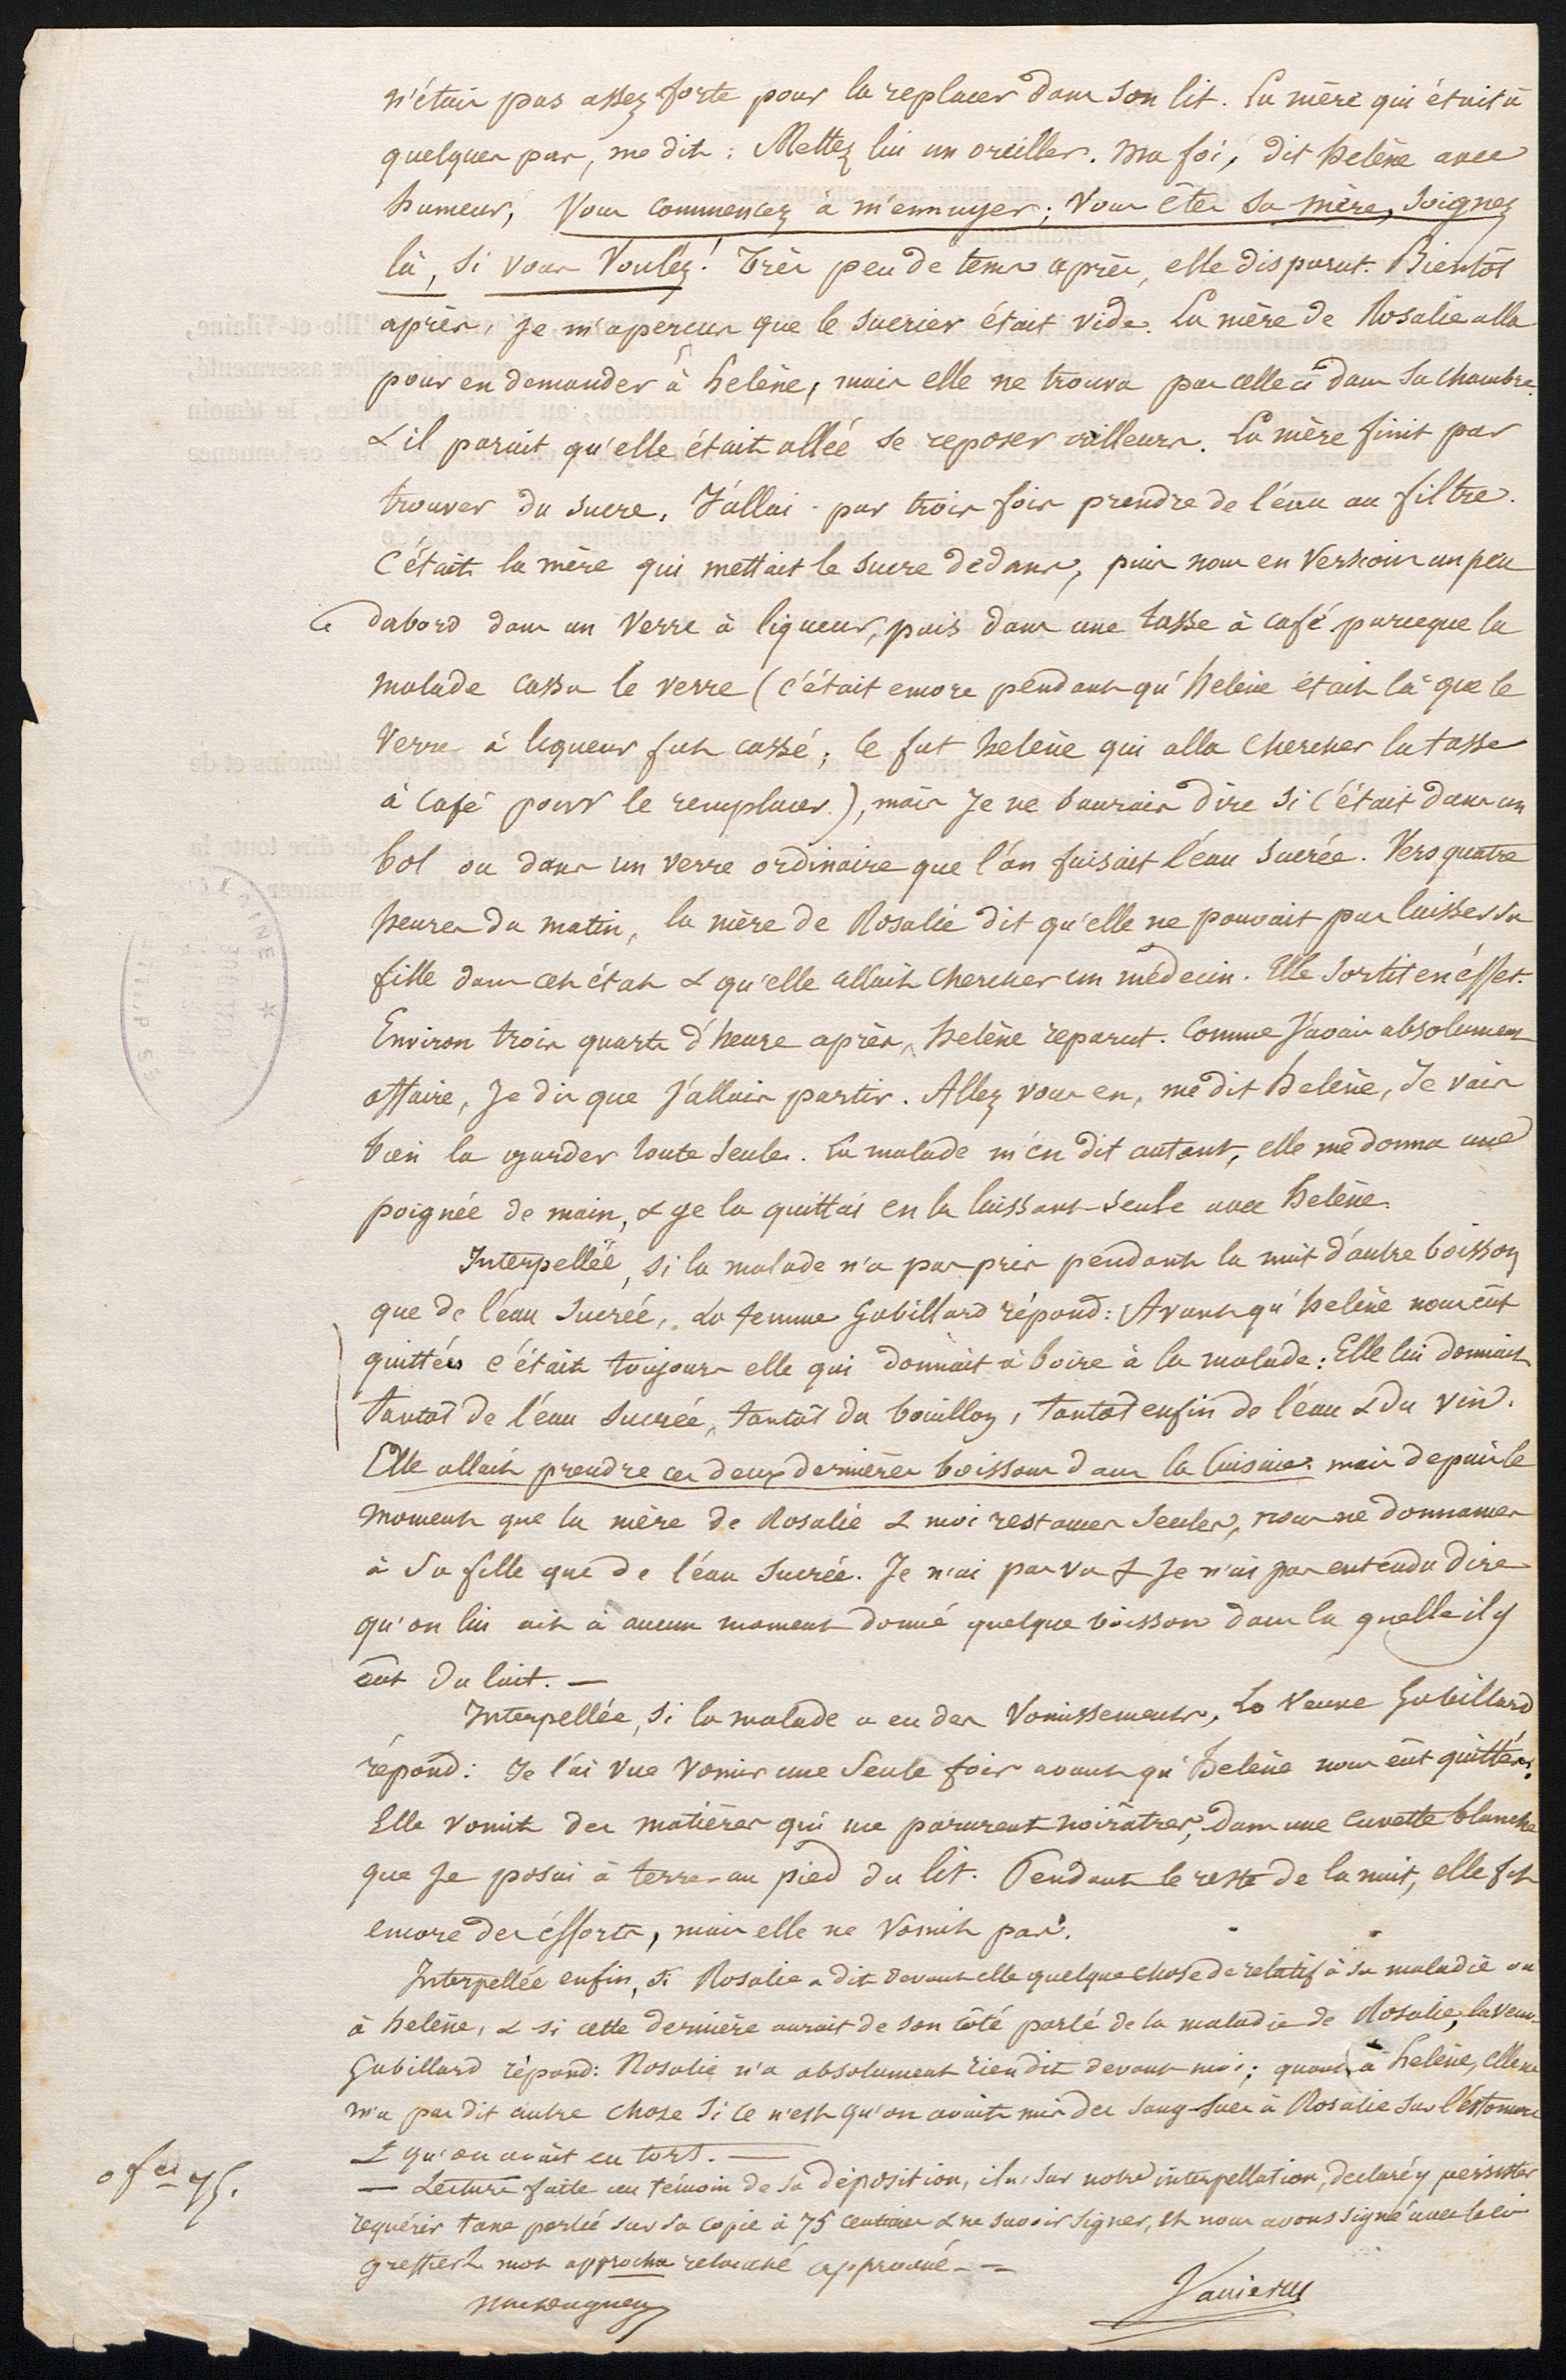 n'étais pas assez forte pour la replacer dans son lit. La mère qui était à
quelques pas, me dit : Mettez lui un oreiller. Ma foi, dit helène avec
humeur, Vous commencez à m'ennuyer ; Vous êtes sa mère, soignez
là, si vous Voulez ! Très peu de tems après, elle disparut. Bientôt
après, je m'aperçus que le sucrier était vide. La mère de Rosalie alla
pour en demander à helène, mais elle ne trouva pas celle ci dans sa chambre
& il parait qu'elle était allée se reposer ailleurs. La mère finit par
trouver du sucre, J'allai par trois fois prendre de l'eau au filtre.
C'était la mère qui mettait le sucre dedans, puis nous en versions un peu
dabord dans un verre à liqueur, puis dans une tasse à café parceque la
malade cassa le verre (c'était encore pendant qu'helène était là que le
verre à liqueur fut cassé ; ce fut helène qui alla chercher la tasse
à café pour le remplacer), mais je ne saurais dire si c'était dans un
bol ou dans un verre ordinaire que l'on faisait l'eau sucrée. Vers quatre
heures du matin, la mère de Rosalie dit qu'elle ne pouvait pas laisser sa
fille dans cet état & qu'elle allait chercher un médecin. Elle sortit en éffet.
Environ trois quarts d'heure après, helène reparut. Comme j'avais absolument
affaire, je dis que j'allais partir. Allez vous en, me dit helène, je vais
bien la garder toute seule. La malade m'en dit autant, elle me donna une
poignée de main, & je la quittai en la laissant seule avec helène.
Interpellée, si la malade n'a pas pris pendant la nuit d'autre boisson
que de l'eau sucrée, La femme Gabillard répond : Avant qu'helène nous eût
quittées c'était toujours elle qui donnait à boire à la malade : Elle lui donnait
tantôt de l'eau sucrée, tantôt du bouillon, tantôt enfin de l'eau & du vin.
Elle allait prendre ces deux dernières boissons dans la cuisine. mais depuis le
moment que la mère de Rosalie & moi restames seules, nous ne donnames
à sa fille que de l'eau sucrée. Je n'ai pas vu & je n'ai pas entendu dire
qu'on lui ait à aucun moment donné quelque boisson dans la quelle il y
eut du lait. —
Interpellée, si la malade a eu des vomissements, La Veuve Gabillard
répond : Je l'ai vue vomir une seule fois avant qu'helène nous eût quittées.
Elle vomit des matières qui me parurent noirâtres, dans une cuvette blanche
que je posai à terre au pied du lit. Pendant le reste de la nuit, elle fit
encore des éfforts, mais elle ne vomit pas.
Interpellée enfin, si Rosalie a dit devant elle quelque chose de relatif à sa maladie ou
à helène, & si cette dernière aurait de son côté parlé de la maladie de Rosalie, la veuve
Gabillard répond : Rosalie n'a absolument rien dit devant moi ; quant à helène, elle ne
m'a pas dit autre chose si ce n'est qu'on avait mis des sang-sues à Rosalie sur l'éstomac
& qu'on avait eu tort. —
— Lecture faite au témoin de sa déposition, il a, sur notre interpellation, declaré y persister
requérir taxe portée sur sa copie à 75 centimes & ne savoir signer, et nous avons signé avec le
greffier & mot approcha retouché approuvé. —
0 f 75.
Vannier
VILAINE